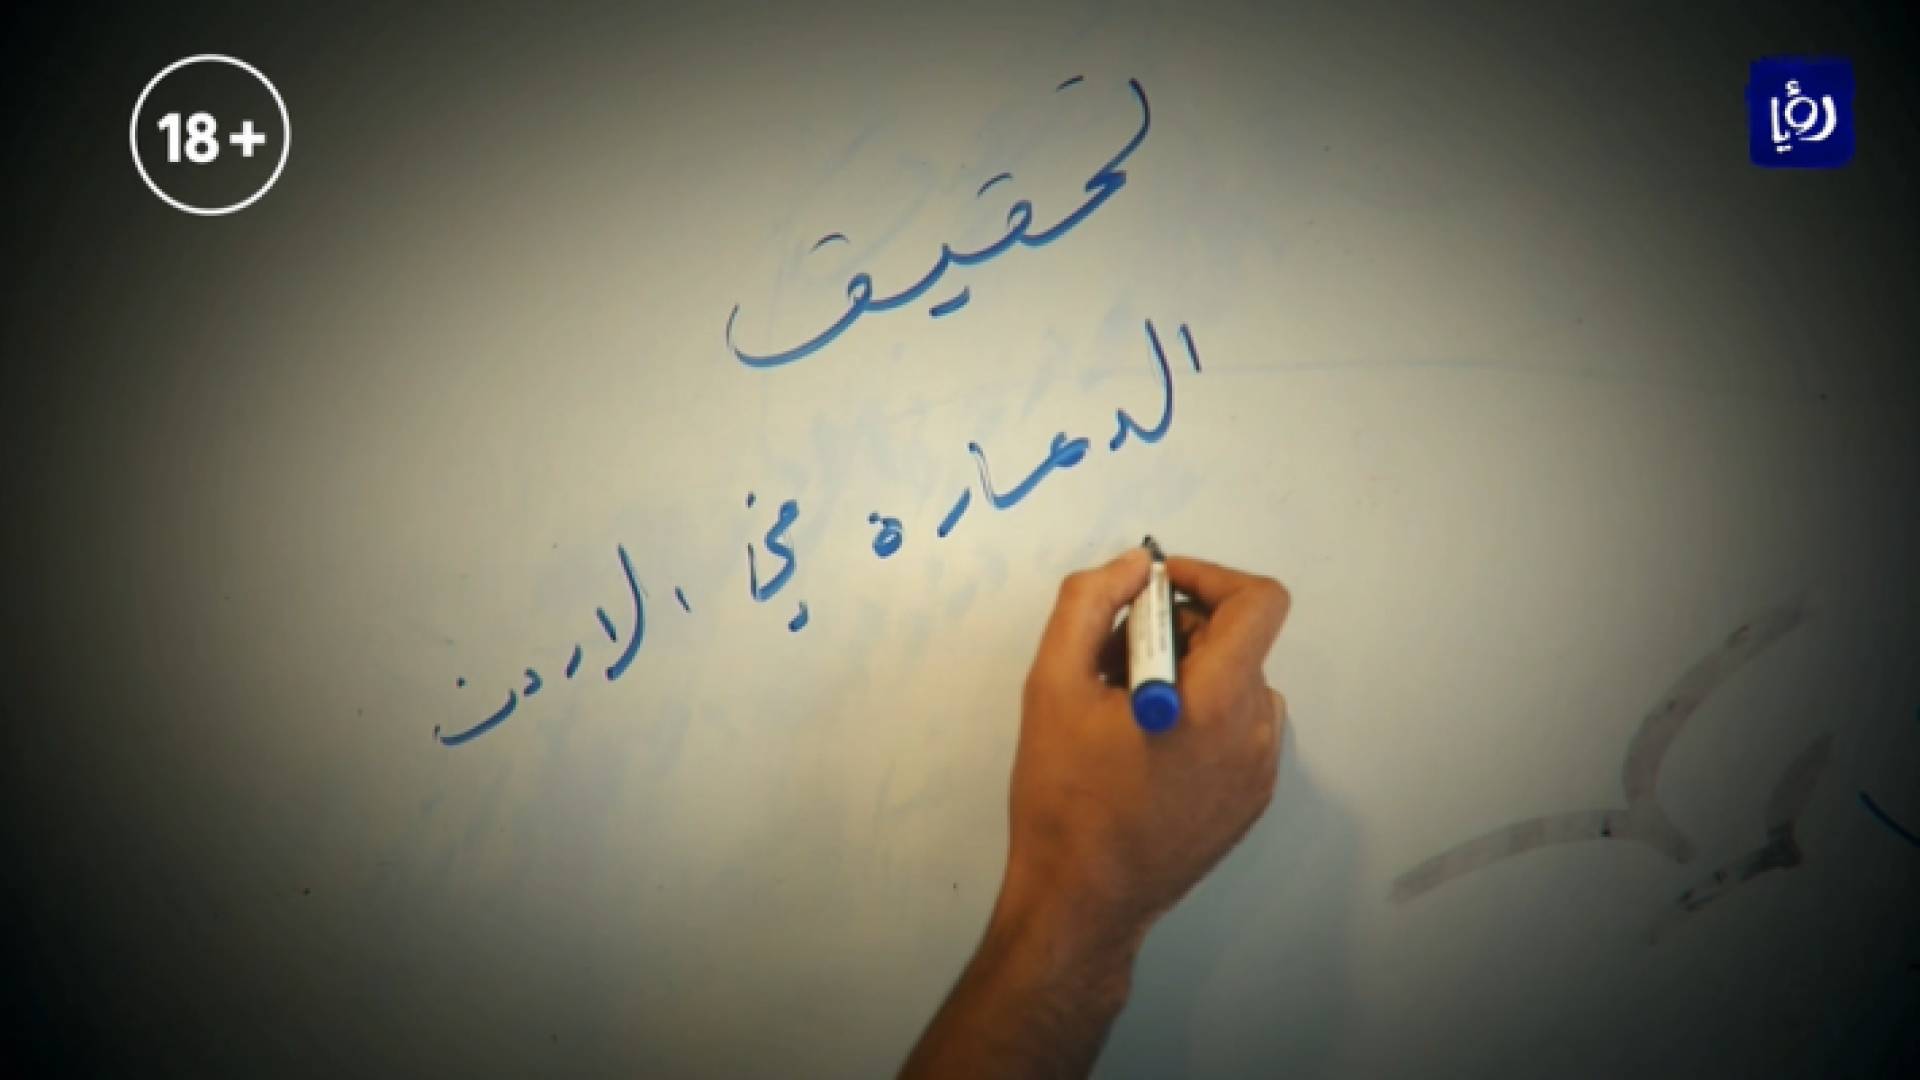 18+
رؤيا
تحقيق
الدعارة في الاردن